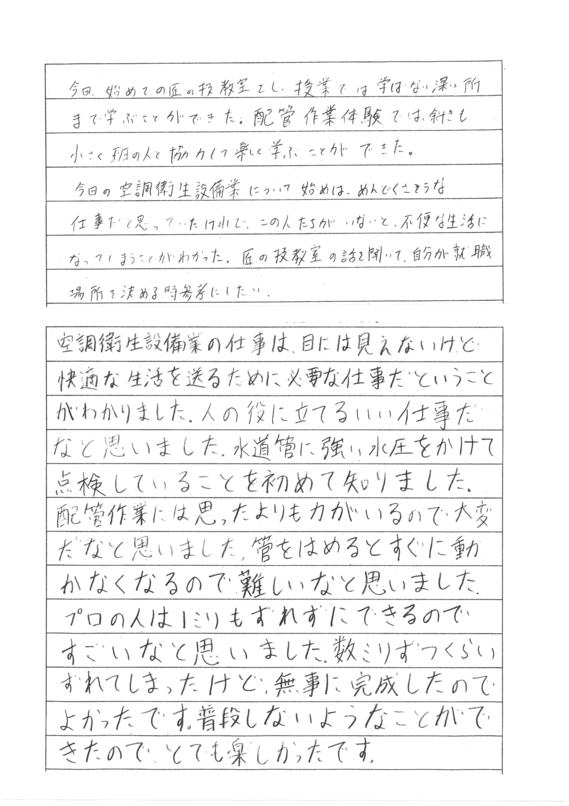 今日、始めての匠の技教室をし、授業では学ばない深い所
まで学ぶことができた。配管作業体験では、斜きも
小さく班の人と協力して楽しく学ぶことができた。
今日の空調衛生設備業について始めは、めんどくさそうな
仕事だと思っていたけれど、この人たちがいないと、不便な生活に
なってしまうことがわかった。匠の技教室の話を聞いて、自分が就職
場所を決める時参考にしたい。
空調衛生設備業の仕事は、目には見えないけど
快適な生活を送るために必要な仕事だということ
がわかりました。人の役に立てるいい仕事だ
なと思いました。水道管に強い水圧をかけて
点検していることを初めて知りました。
配管作業には思ったよりも力がいるので大変
だなと思いました。管をはめるとすぐに動
かなくなるので難しいなと思いました。
プロの人は1ミリもずれずにできるので
すごいなと思いました。数ミリずつくらい
ずれてしまったけど、無事に完成したので
よかったです。普段しないようなことがで
きたので、とても楽しかったです。